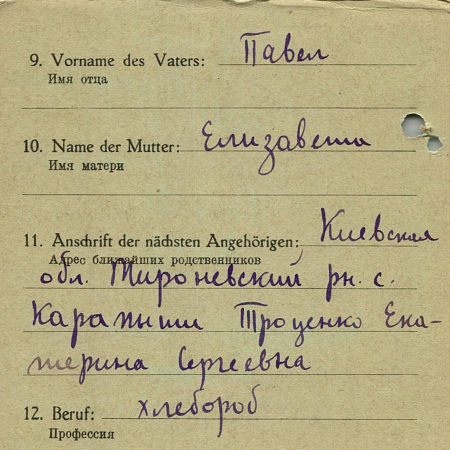 9. Vorname des Vaters: Павел
Имя отца
10. Name der Mutter: Елизавета
Имя матери
11. Anschrift der nächsten Angehörigen: Киевская
Адрес ближайших родственников
обл. Мироневский рн. с.
Карапыши Троценко Ека-
терина Сергеевна
12. Beruf: хлебороб
Профессия